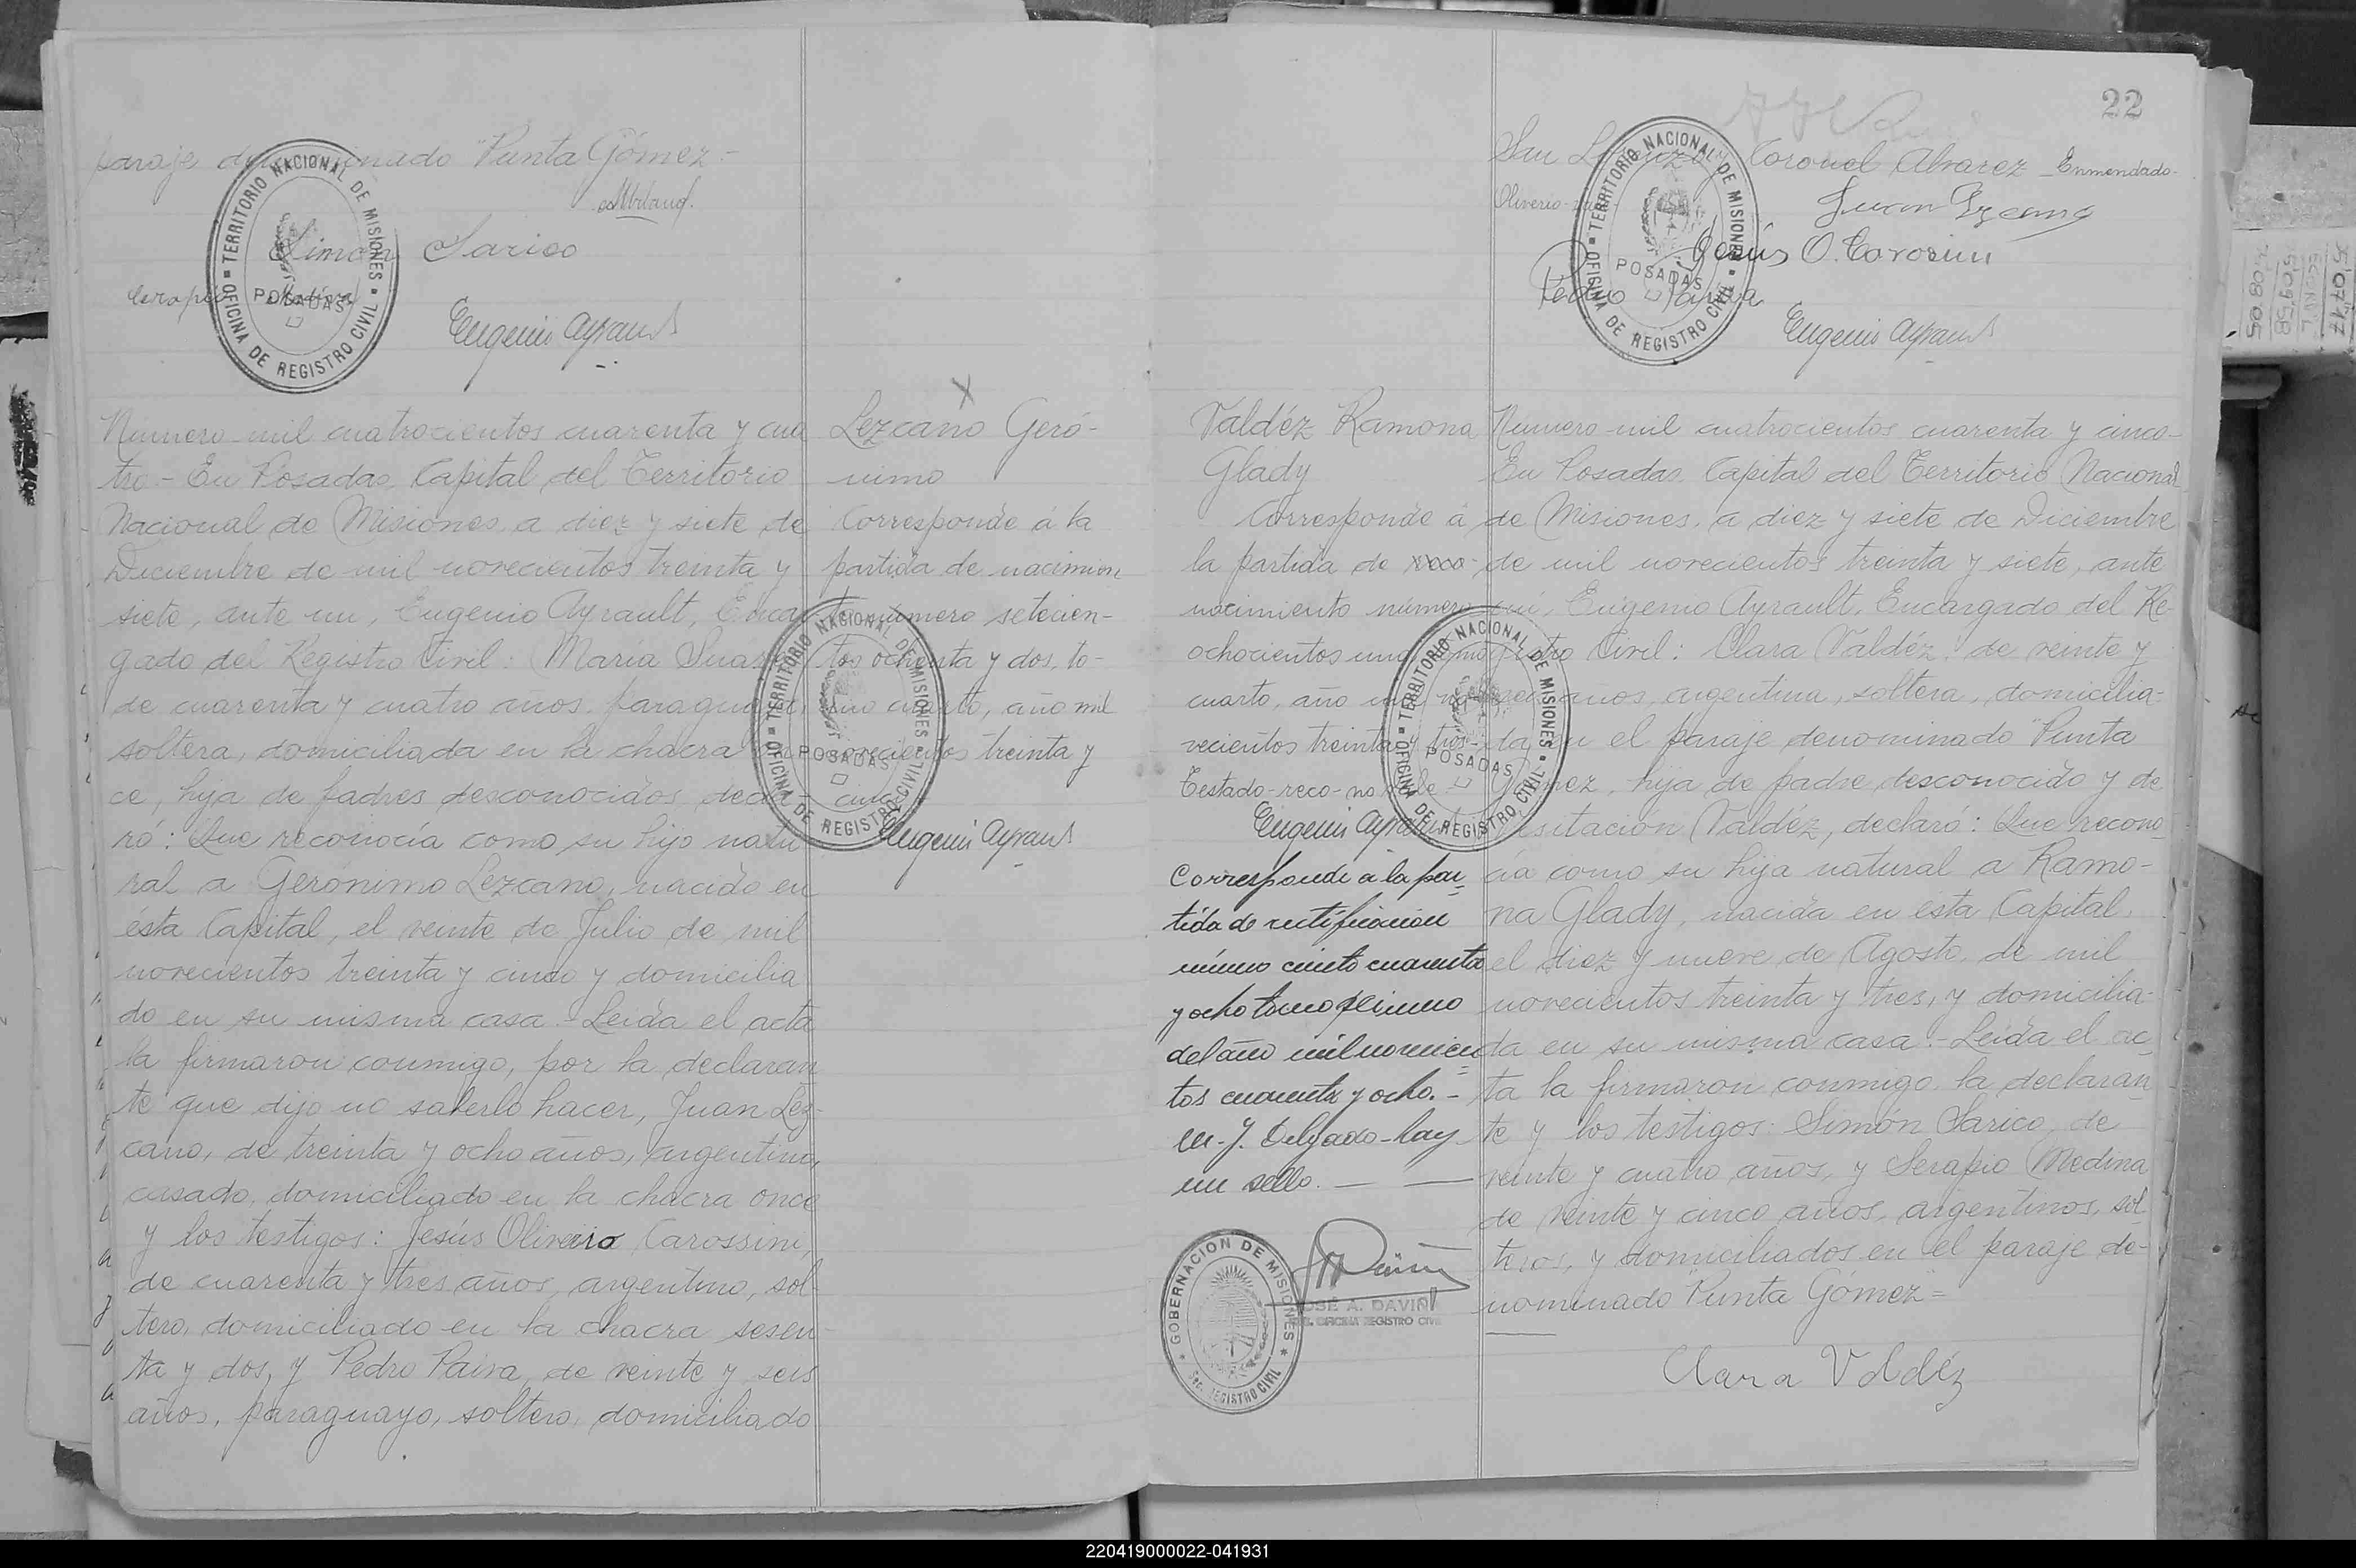 paraje denominado "Punta Gómez"-
Simón Sarico
Serapio Medina
Eugenio Ayrault
TERRITORIO NACIONAL DE MISIONES
POSADAS
OFICINA DE REGISTRO CIVIL
Número mil cuatrocientos cuarenta y cua
tro.- En Posadas, Capital del Territorio
Nacional de Misiones, a diez y siete de
Diciembre de mil novecientos treinta y
siete, ante mi, Eugenio Ayrault, Encar
gado del Registro Civil: María Suarez
de cuarenta y cuatro años, paraguaya,
soltera, domiciliada en la chacra on
ce, hija de padres desconocidos, decla-
ró: Que reconocía como su hijo natu
ral a Gerónimo Lezcano, nacido en
ésta Capital, el veinte de Julio de mil
novecientos treinta y cinco y domicilia
do en su misma casa.- Leída el acta
la firmaron conmigo, por la declaran
te que dijo no saberlo hacer, Juan Lez-
cano, de treinta y ocho años, argentino,
casado, domiciliado en la chacra once
y los testigos: Jesús Oliverio Carossini,
de cuarenta y tres años, argentino, sol-
tero, domiciliado en la chacra sesen-
ta y dos, y Pedro Paiva, de veinte y seis
años, paraguayo, soltero, domiciliado
Lezcano Geró-
nimo
Corresponde á la
partida de nacimien
to número setecien-
tos ochenta y dos, to-
mo cuarto, año mil
novecientos treinta y
cinco
Eugenio Ayrault
TERRITORIO NACIONAL DE MISIONES
POSADAS
OFICINA DE REGISTRO CIVIL
22
San Lorenzo y Coronel Alvarez - Enmendado-
Oliverio-
Jesús O. Carossini
Pedro Paiva
Eugenio Ayrault
TERRITORIO NACIONAL DE MISIONES
POSADAS
OFICINA DE REGISTRO CIVIL
Valdéz Ramona
Glady
Corresponde á
la partida de
nacimiento número
ochocientos uno, tomo
cuarto, año mil no-
vecientos treinta y tres-
Testado-reco-no vale-
Eugenio Ayrault
Corresponde a la par
tida de rectificación
número ciento cuarenta
y ocho tomo primero
del año mil novecien
tos cuarenta y ocho.-
J. Delgado-hay
un sello.
GOBERNACION DE MISIONES
REGISTRO CIVIL
JOSÉ A. DAVIÑA
OFICINA REGISTRO CIVIL
Número mil cuatrocientos cuarenta y cinco-
En Posadas, Capital del Territorio Nacional
de Misiones, a diez y siete de Diciembre
de mil novecientos treinta y siete, ante
mi, Eugenio Ayrault, Encargado del Re-
gistro Civil: Clara Valdéz, de veinte y
años, argentina, soltera, domicilia-
da en el paraje denominado "Punta
Gómez, hija de padre desconocido y de
Visitación Valdéz, declaró: Que recono
cía como su hija natural a Ramo-
na Glady, nacida en ésta Capital,
el diez y nueve de Agosto de mil
novecientos treinta y tres, y domicilia-
da en su misma casa.- Leída el ac
ta la firmaron conmigo, la declaran
te y los testigos: Simón Sarico, de
veinte y cuatro años, y Serapio Medina
de veinte y cinco años, argentinos, sol
teros, y domiciliados en el paraje de-
nominado "Punta Gómez"=
Clara Valdéz
TERRITORIO NACIONAL DE MISIONES
POSADAS
OFICINA DE REGISTRO CIVIL
220419000022-041931